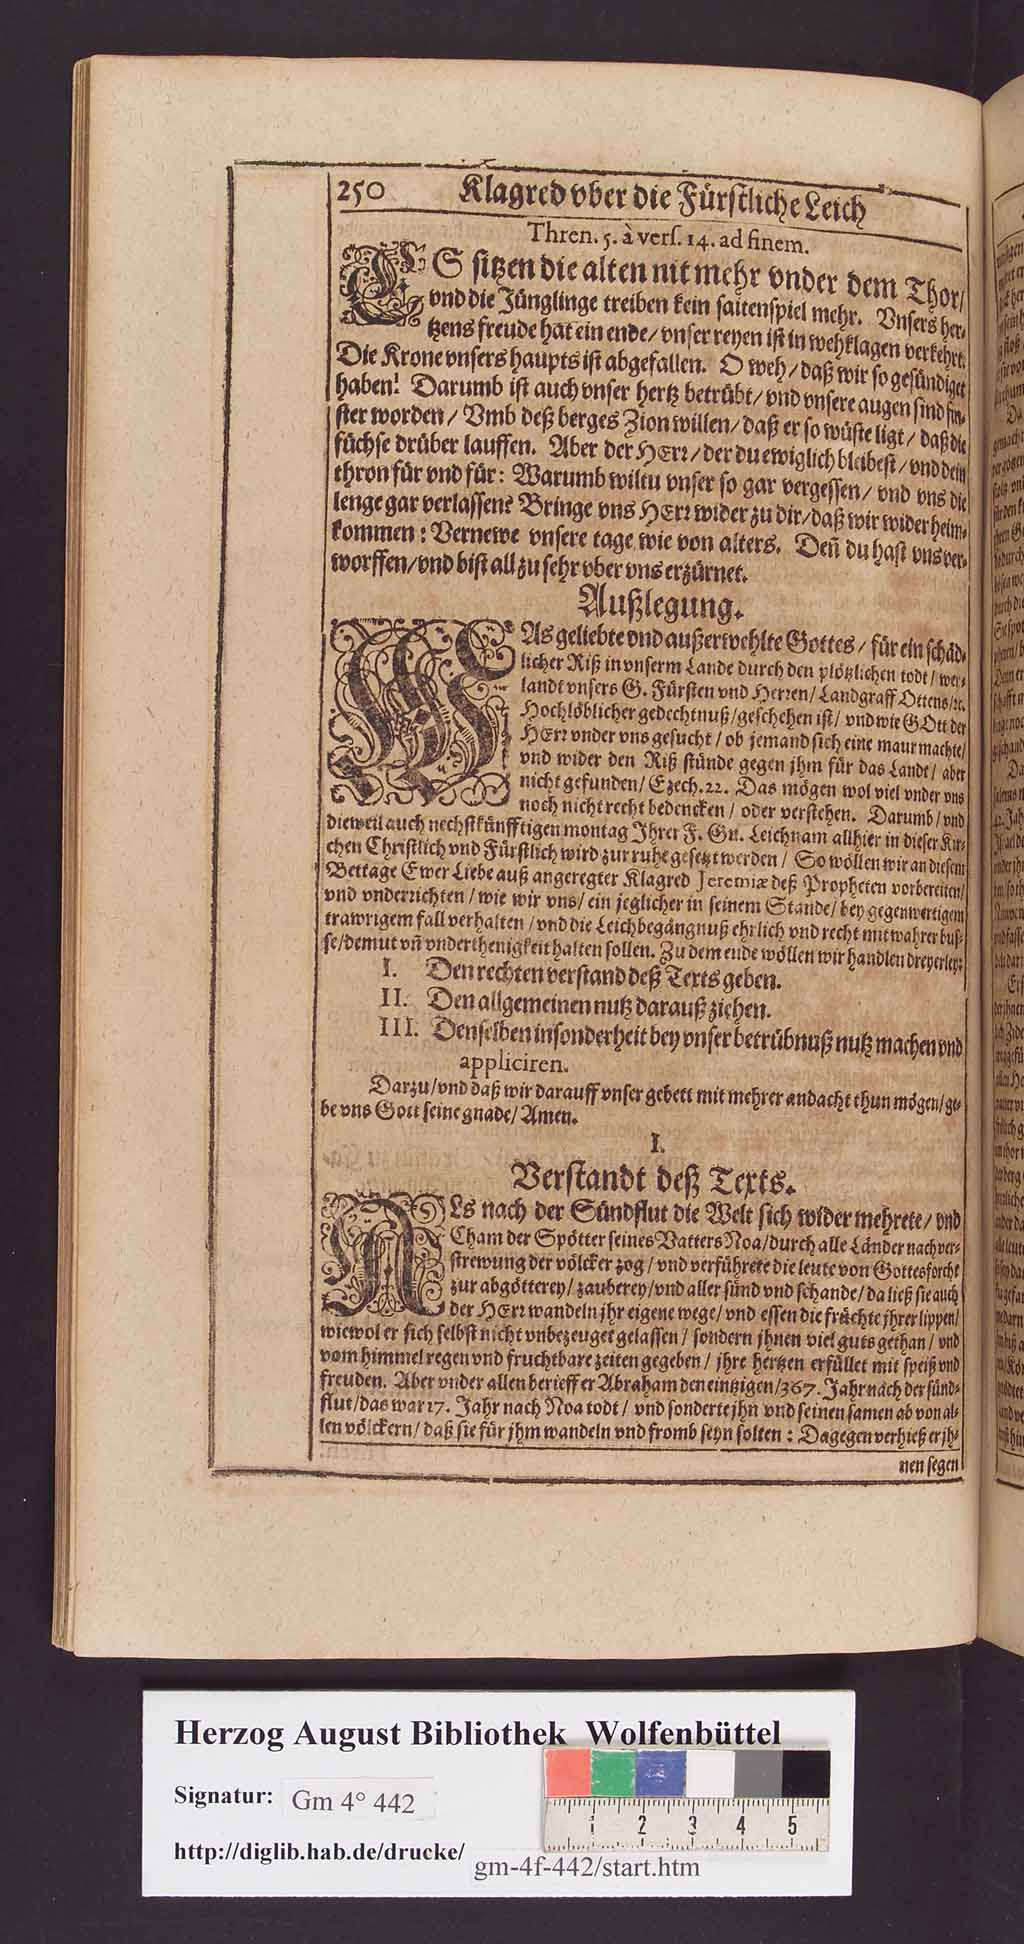 250 Klagred vber die Fürstliche Leich
Thren. 5. à vers. 14. ad finem.
ES sitzen die alten nit mehr vnder dem Thor/
vnd die Jünglinge treiben kein saitenspiel mehr. Vnsers her-
tzens freude hat ein ende/ vnser reyen ist in wehklagen verkehrt.
Die Krone vnsers haupts ist abgefallen. O weh/ daß wir so gesündiget
haben! Darumb ist auch vnser hertz betrübt/ vnd vnsere augen sind fin-
ster worden/ Vmb deß berges Zion willen/ daß er so wüste ligt/ daß die
füchse drüber lauffen. Aber der HErr/ der du ewiglich bleibest/ vnd dein
thron für vnd für: Warumb wiltu vnser so gar vergessen/ vnd vns die
lenge gar verlassen? Bringe vns HErr wider zu dir/ daß wir wider heim-
kommen: Vernewe vnsere tage wie von alters. Deñ du hast vns ver-
worffen/ vnd bist all zu sehr vber vns erzürnet.
Außlegung.
WAs geliebte vnd außerwehlte Gottes/ für ein schäd-
licher Riß in vnserm Lande durch den plötzlichen todt/ wei-
landt vnsers G. Fürsten vnd Herren/ Landgraff Ottens/ ꝛc.
Hochlöblicher gedechtnuß/ geschehen ist/ vnd wie GOtt der
HErr vnder vns gesucht/ ob jemand sich eine maur machte/
vnd wider den Riß stünde gegen jhm für das Landt/ aber
nicht gefunden/ Ezech. 22. Das mögen wol viel vnder vns
noch nicht recht bedencken/ oder verstehen. Darumb/ vnd
dieweil auch nechstkünfftigen montag Jhrer F. Gn. Leichnam allhier in dieser Kir-
chen Christlich vnd Fürstlich wird zur ruhe gesetzt werden/ So wöllen wir an diesem
Bettage Ewer Liebe auß angeregter Klagred Jeremiæ deß Propheten vorbereiten/
vnd vnderrichten/ wie wir vns/ ein jeglicher in seinem Stande/ bey gegenwertigem
trawrigem fall verhalten/ vnd die Leichbegängnuß ehrlich vnd recht mit wahrer bus-
se/ demut vñ vnderthenigkeit halten sollen. Zu dem ende wöllen wir handlen dreyerley:
I. Den rechten verstand deß Texts geben.
II. Den allgemeinen nutz darauß ziehen.
III. Denselben insonderheit bey vnser betrübnuß nutz machen vnd
appliciren.
Darzu/ vnd daß wir darauff vnser gebett mit mehrer andacht thun mögen/ ge-
be vns Gott seine gnade/ Amen.
I.
Verstandt deß Texts.
ALs nach der Sündflut die Welt sich wider mehrete/ vnd
Cham der Spötter seines Vatters Noa/ durch alle Länder nach ver-
strewung der völcker zog/ vnd verführete die leute von Gottesforcht
zur abgötterey/ zauberey/ vnd aller sünd vnd schande/ da ließ sie auch
der HErr wandeln jhr eigene wege/ vnd essen die früchte jhrer lippen/
wiewol er sich selbst nicht vnbezeuget gelassen/ sondern jhnen viel guts gethan/ vnd
vom himmel regen vnd fruchtbare zeiten gegeben/ jhre hertzen erfüllet mit speiß vnd
freuden. Aber vnder allen berieff er Abraham den eintzigen/ 367. Jahr nach der sünd-
flut/ das war 17. Jahr nach Noa todt/ vnd sonderte jhn vnd seinen samen ab von al-
len völckern/ daß sie für jhm wandeln vnd fromb seyn solten: Dagegen verhieß er jh-
nen segen
Herzog August Bibliothek Wolfenbüttel
Signatur: Gm 4° 442
1 2 3 4 5
http://diglib.hab.de/drucke/ gm-4f-442/start.htm